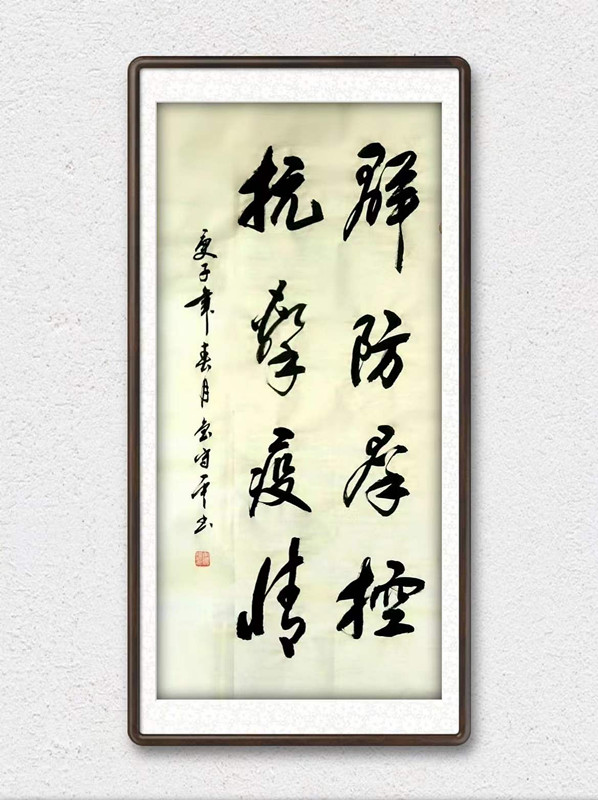 群防群控
抗擊疫情
庚子年春月
書